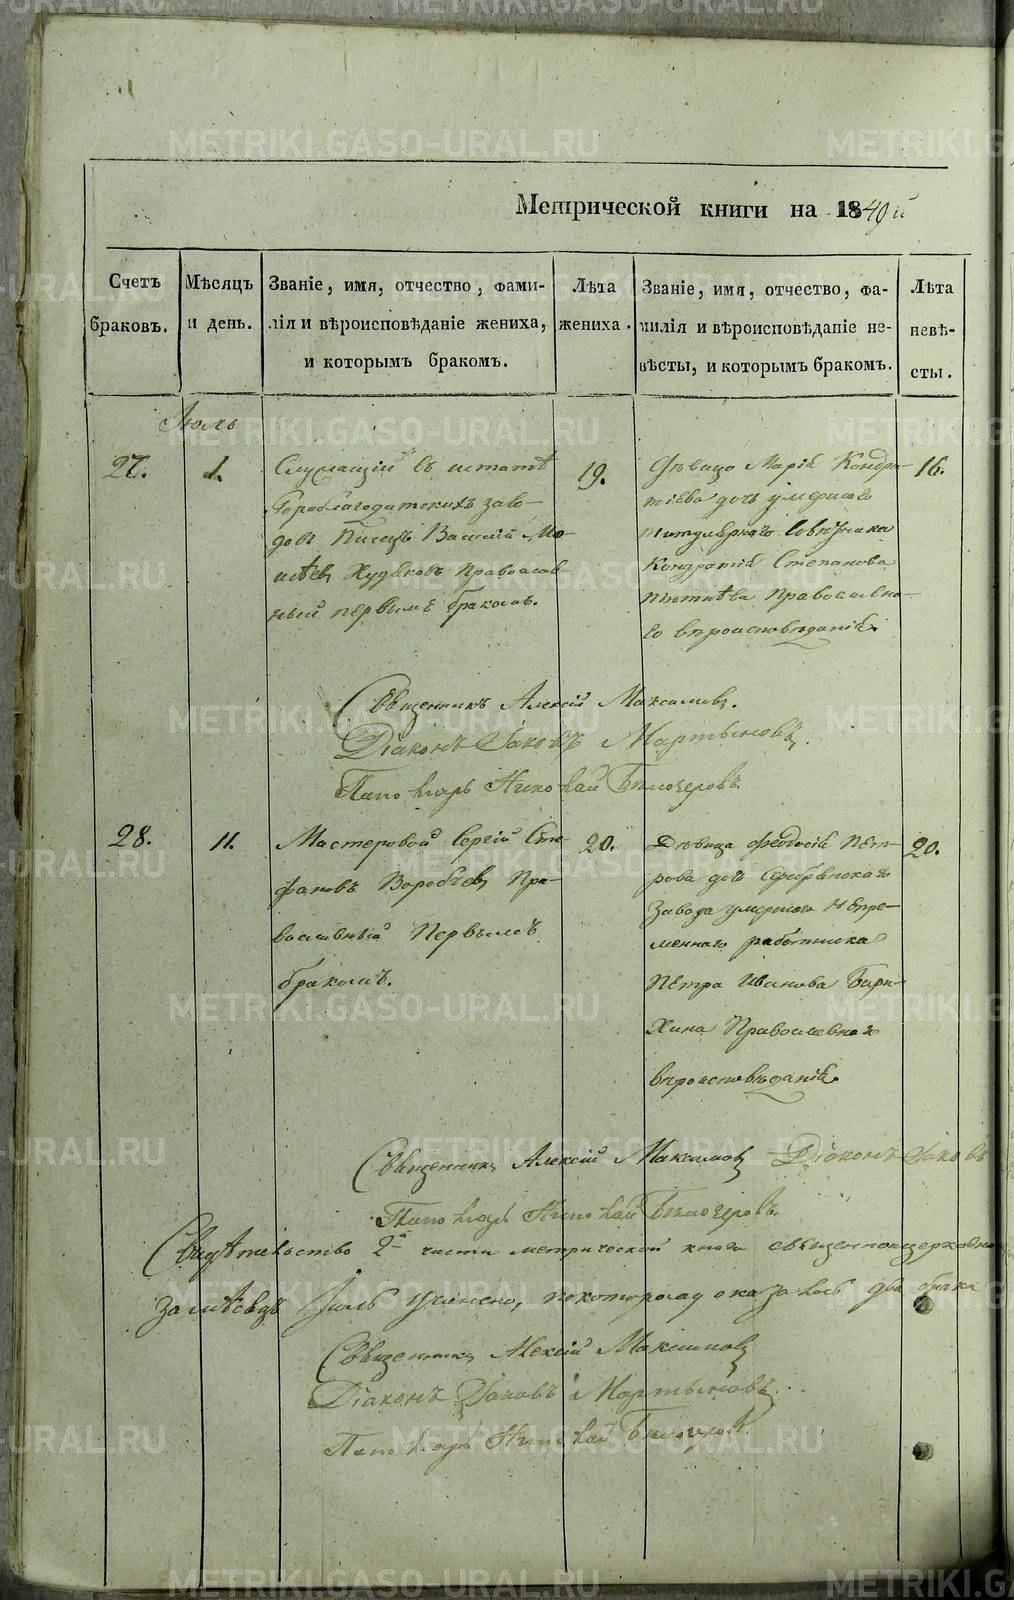 Метрической книги на 1849й
Счетъ браковъ.
Мѣсяцъ и день.
Званіе, имя, отчество, фами-
лія и вѣроисповѣданіе жениха,
и которымъ бракомъ.
Лѣта жениха.
Званіе, имя, отчество, фа-
милія и вѣроисповѣданіе не-
вѣсты, и которымъ бракомъ.
Лѣта невѣ-
сты.
Іюль
27.
1.
Служащій въ штатѣ
Гороблагодатскихъ заво-
довъ Писецъ Василій Мо-
исѣевъ Худяковъ Православ-
ный первымъ бракомъ.
19.
Дѣвица Марія Кондра-
тіева дочь умершаго
титулярнаго Совѣтника
Кондратія Степанова
Православна-
го вѣроисповѣданія.
16.
Священникъ Алексій Максимовъ.
Діаконъ Іаковъ Мартыновъ.
Пономарь Николай
28.
11.
Мастеровой Сергій Сте-
фановъ Воробьевъ Пра-
вославный Первымъ
бракомъ.
20.
Дѣвица Феодосія Пет-
рова дочь Серебрянскаго
Завода умершаго Непре-
меннаго работника
Петра Иванова Бары-
кина Православнаго
вѣроисповѣданія.
20.
Священникъ Алексій Максимовъ Діаконъ Іаковъ
Пономарь Николай
Свидѣтельство 2й части метрической книги священноцерковно
за мѣсяцъ Іюль учинено, по которому оказалось два брака
Священникъ Алексій Максимовъ
Діаконъ Іаковъ Мартыновъ.
Пономарь Николай
METRIKI.GASO-URAL.RU